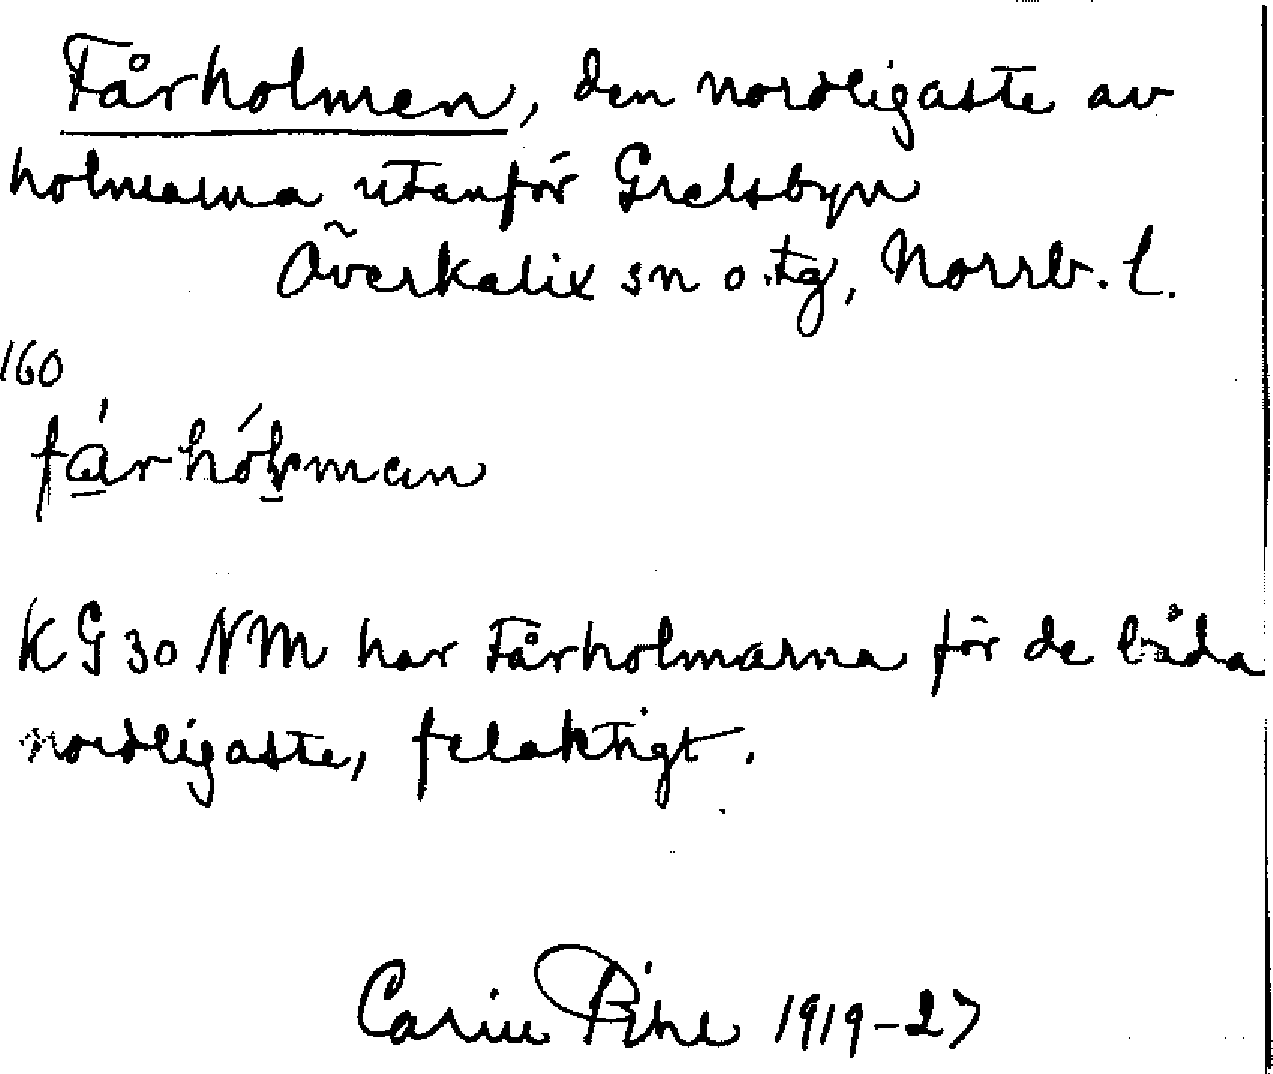 Fårholmen, den nordligaste av
holmarna utanför Grelsbyn
Överkalix sn o. tg, Norrb. l.
160
KG 30 NM har Fårholmarna för de båda
nordligaste, felaktigt.
Carin Pihl 1919-27